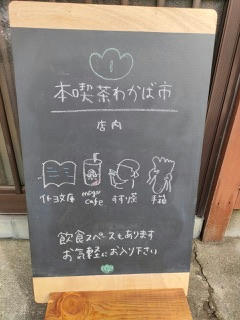 本喫茶わかば市
店内
仆ヨ文庫 mogu cafe すずり茶 手箱
飲食スペースもあります
お気軽にお入り下さい